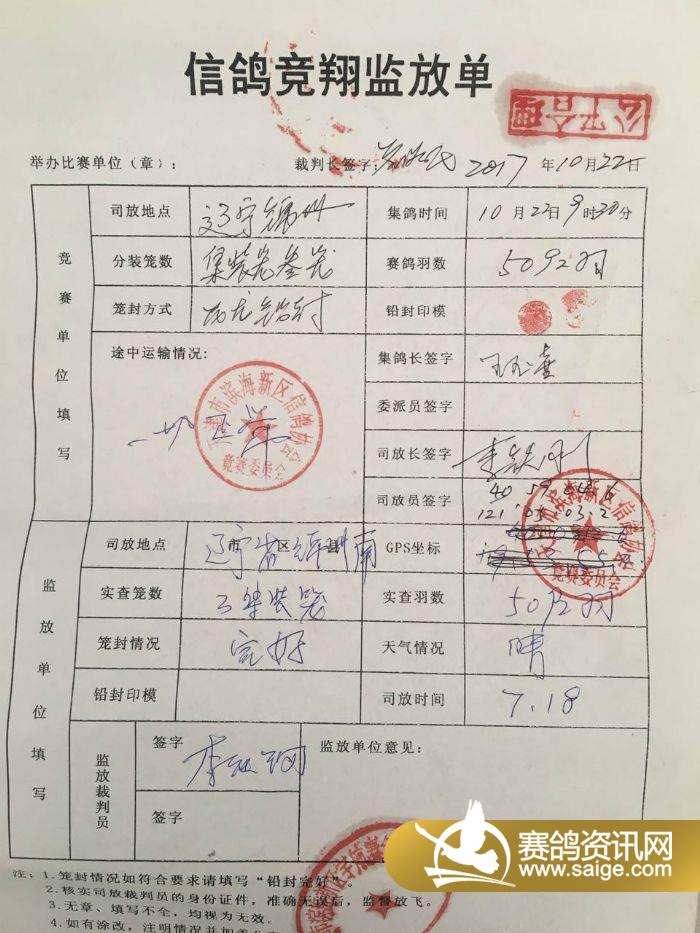 信鸽竞翔监放单
公平合理
举办比赛单位（章）： 裁判长签字: 2017 年10月22日
竞赛单位填写
司放地点 辽宁锦州 集鸽时间 10月22日9时30分
分装笼数 集装笼叁笼 赛鸽羽数 5092羽
笼封方式 铅封 铅封印模
途中运输情况: 集鸽长签字
一切正常
天津市滨海新区信鸽协会
竞赛委员会
委派员签字
司放长签字 李铁刚
司放员签字
监放单位填写
司放地点 辽宁省锦州南 市 区 县 GPS坐标
天津市滨海新区信鸽协会
竞赛委员会
实查笼数 三集装笼 实查羽数
笼封情况 完好 天气情况 晴
铅封印模 司放时间 7.18
监放裁判员 签字 监放单位意见：
签字
注：1.笼封情况如符合要求请填写“铅封完好”。
2.核实司放裁判员的身份证件，准确无误后，监督放飞。
3.无章、填写不全，均视为无效。
4.如有涂改，注明情况并加盖
赛鸽资讯网
www.saige.com